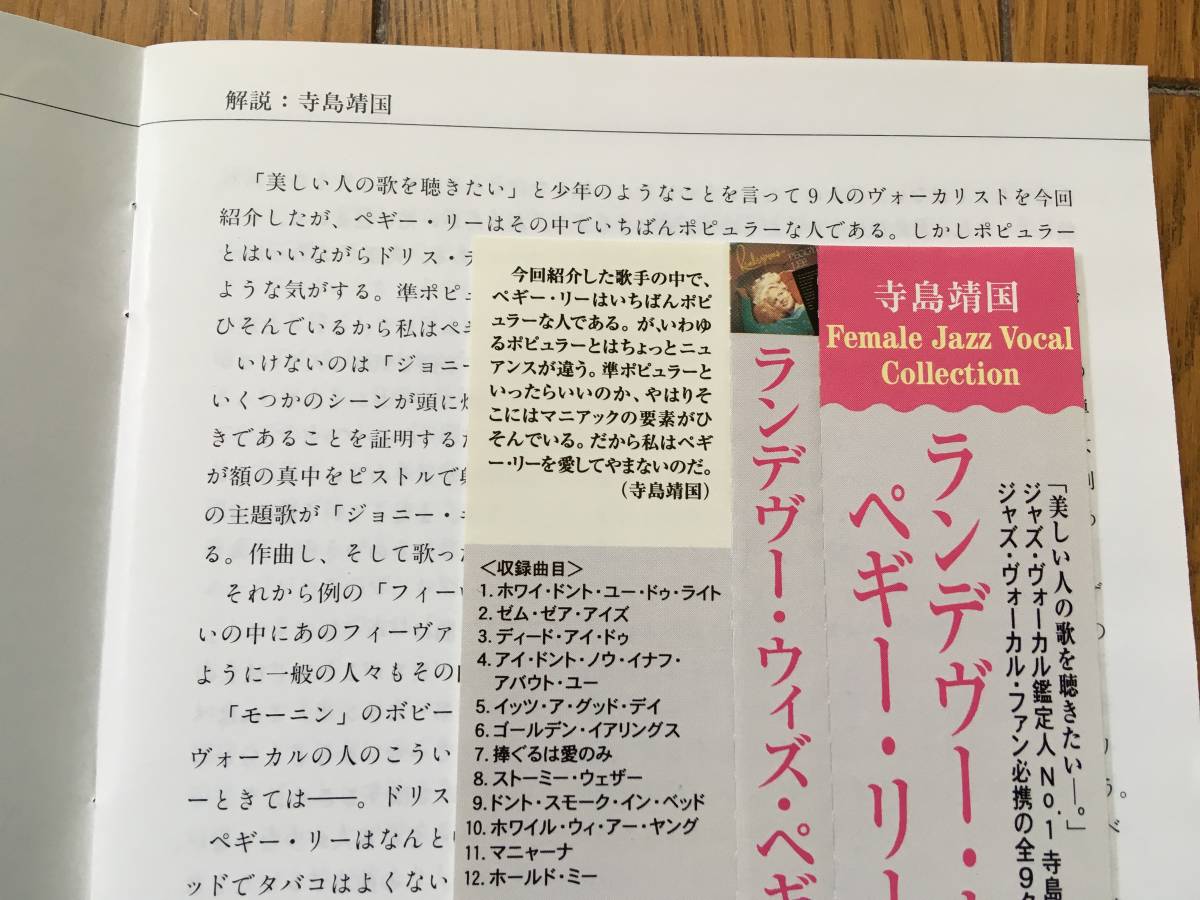 解説：寺島靖国
「美しい人の歌を聴きたい」と少年のようなことを言って９人のヴォーカリストを今回
紹介したが、ペギー・リーはその中でいちばんポピュラーな人である。しかしポピュラー
とはいいながらドリス・デ
ような気がする。準ポピュ
ひそんでいるから私はペギ
いけないのは「ジョニー
いくつかのシーンが頭に
きであることを証明するた
が額の真中をピストルで
の主題歌が「ジョニー・
る。作曲し、そして歌っ
それから例の「フィー
いの中にあのフィーヴァ
ように一般の人々もその
「モーニン」のボビー
ヴォーカルの人のこうい
ーときては――。ドリス
ペギー・リーはなんと
ッドでタバコはよくない
今回紹介した歌手の中で、
ペギー・リーはいちばんポピ
ュラーな人である。が、いわゆ
るポピュラーとはちょっとニュ
アンスが違う。準ポピュラーと
いったらいいのか、やはりそ
こにはマニアックの要素がひ
そんでいる。だから私はペギ
ー・リーを愛してやまないのだ。
（寺島靖国）
＜収録曲目＞
1. ホワイ・ドント・ユー・ドゥ・ライト
2. ゼム・ゼア・アイズ
3. ディード・アイ・ドゥ
4. アイ・ドント・ノウ・イナフ・
アバウト・ユー
5. イッツ・ア・グッド・デイ
6. ゴールデン・イアリングス
7. 捧ぐるは愛のみ
8. ストーミー・ウェザー
9. ドント・スモーク・イン・ベッド
10. ホワイル・ウィ・アー・ヤング
11. マニャーナ
12. ホールド・ミー
PEGGY
LEE
ランデヴー・ウィズ・ペギ
寺島靖国
Female Jazz Vocal
Collection
ランデヴー・
ペギー・リー
「美しい人の歌を聴きたい―。」
ジャズ・ヴォーカル鑑定人No.1 寺島
ジャズ・ヴォーカル・ファン必携の全9タ